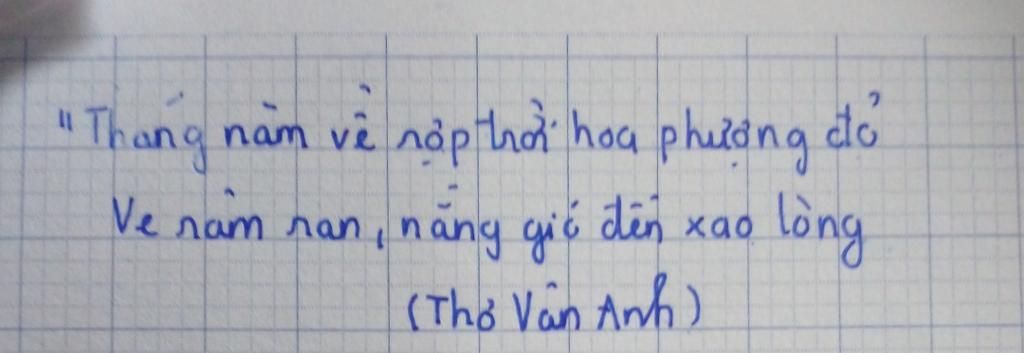 "Tháng năm về rợp trời hoa phượng đỏ
Ve râm ran, nắng gió đến xao lòng
(Thơ Vân Anh)